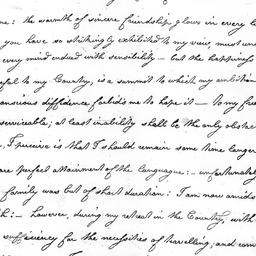 me: the warmth of sincere friendship glows in every l
you have so strikingly exhibited to my view, must un
every mind endued with sensibility – but the happiness
eful to my Country, is a summit to which my ambition
anxious diffidence forbids me to hope it – to my fre
serviceable, at least inability shall be the only obstac
, I perceive is that I should remain some time longer
ore perfect attainment of the language: – unfortunately
family was but of short duration: I am now amids
h: – however, during my retreat in the Country, with
sufficiency for the necessities of travelling, and com